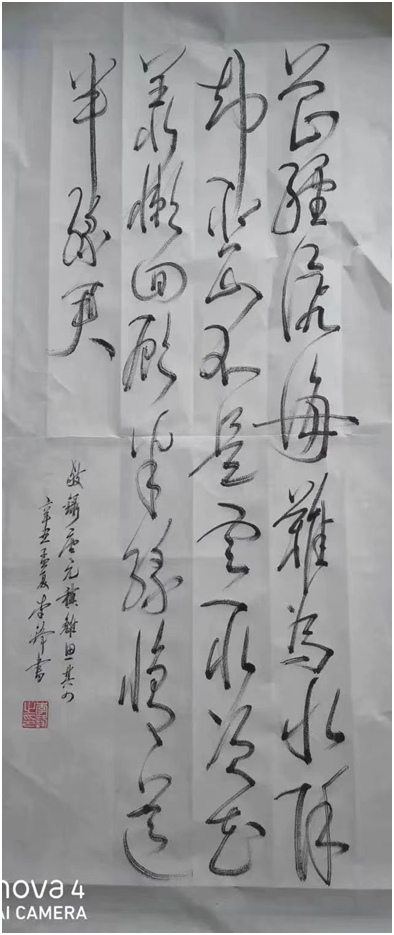 曾經滄海難為水除
却巫山不是雲取次花
叢懶回顧半緣修道
半緣君
敬錄唐元稹離思其四
辛丑孟夏李書
nova 4
AI CAMERA